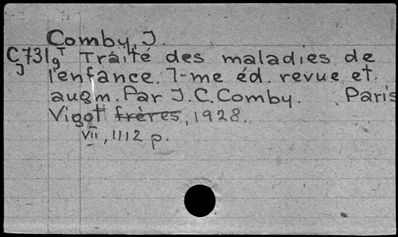 Comby, J.
C731gT Traité des maladies de
J l'enfance. 7-me éd. revue et
augm. Par J.C. Comby. Paris
Vigot frères, 1928.
VII, 1112 p.